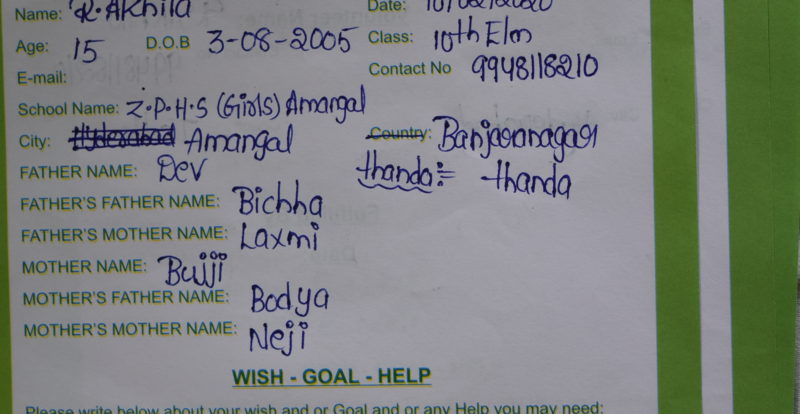 Name: R. Akhila Date: 10/02/2020
Age: 15 D.O.B 3-08-2005 Class: 10th E/m
E-mail: Contact No 9948118210
School Name: Z.P.H.S (Girls) Amangal
City: Hyderabad Amangal Country: Banjaranagar
FATHER NAME: Dev thanda:= thanda
FATHER'S FATHER NAME: Bichha
FATHER'S MOTHER NAME: Laxmi
MOTHER NAME: Bujji
MOTHER'S FATHER NAME: Bodya
MOTHER'S MOTHER NAME: Neji
WISH - GOAL - HELP
Please write below about your wish and or Goal and or any Help you may need: